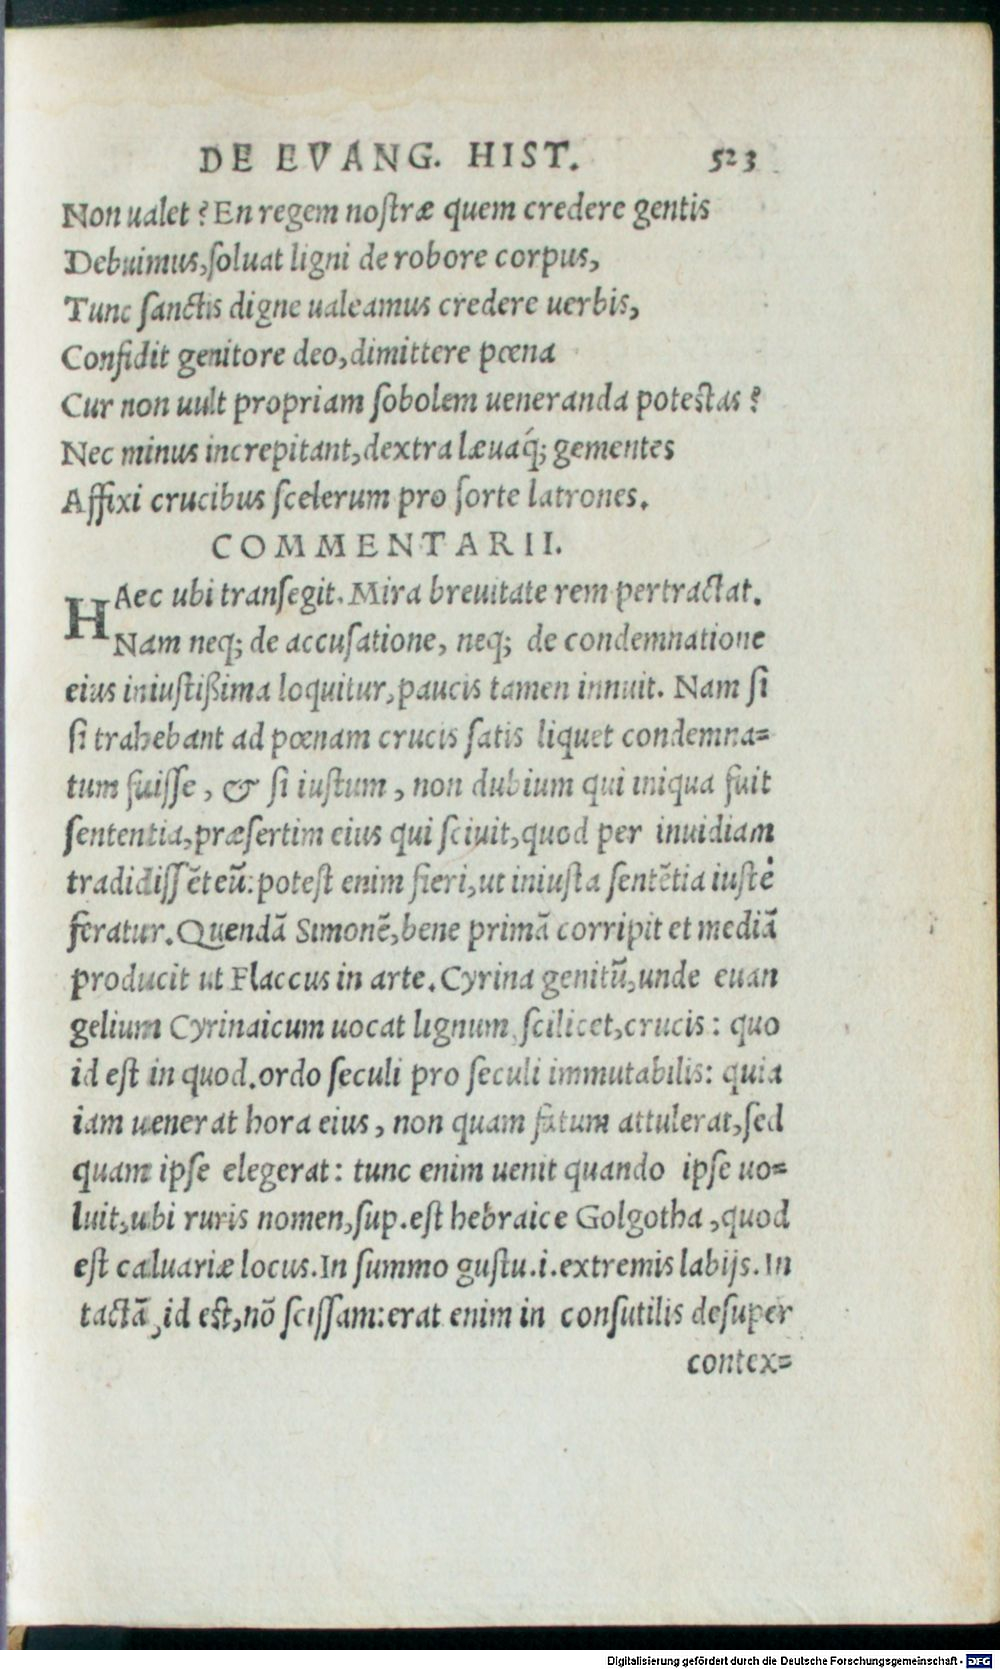 DE EVANG. HIST. 523
Non ualet? En regem noſtræ quem credere gentis
Debuimus, ſoluat ligni de robore corpus,
Tunc ſanctis digne ualeamus credere uerbis,
Confidit genitore deo, dimittere pœna
Cur non uult propriam ſobolem ueneranda poteſtas?
Nec minus increpitant, dextra læuaq́; gementes
Affixi crucibus ſcelerum pro ſorte latrones.
COMMENTARII.
HAec ubi tranſegit. Mira breuitate rem pertractat.
Nam neq; de accuſatione, neq; de condemnatione
eius iniuſtißima loquitur, paucis tamen innuit. Nam ſi
ſi trahebant ad pœnam crucis ſatis liquet condemna=
tum fuiſſe, & ſi iuſtum, non dubium qui iniqua fuit
ſententia, præſertim eius qui ſciuit, quod per inuidiam
tradidiſſēt eū: poteſt enim fieri, ut iniuſta ſentētia iuſtè
feratur. Quendā Simonē, bene primā corripit et mediā
producit ut Flaccus in arte. Cyrina genitū, unde euan
gelium Cyrinaicum uocat lignum ſcilicet, crucis: quo
id eſt in quod. ordo ſeculi pro ſeculi immutabilis: quia
iam uenerat hora eius, non quam fatum attulerat, ſed
quam ipſe elegerat: tunc enim uenit quando ipſe uo=
luit, ubi ruris nomen, ſup. eſt hebraice Golgotha, quod
eſt caluariæ locus. In ſummo guſtu .i. extremis labijs. In
tactā, id eſt, nō ſciſſam: erat enim in conſutilis deſuper
contex=
Digitalisierung gefördert durch die Deutsche Forschungsgemeinschaft - DFG